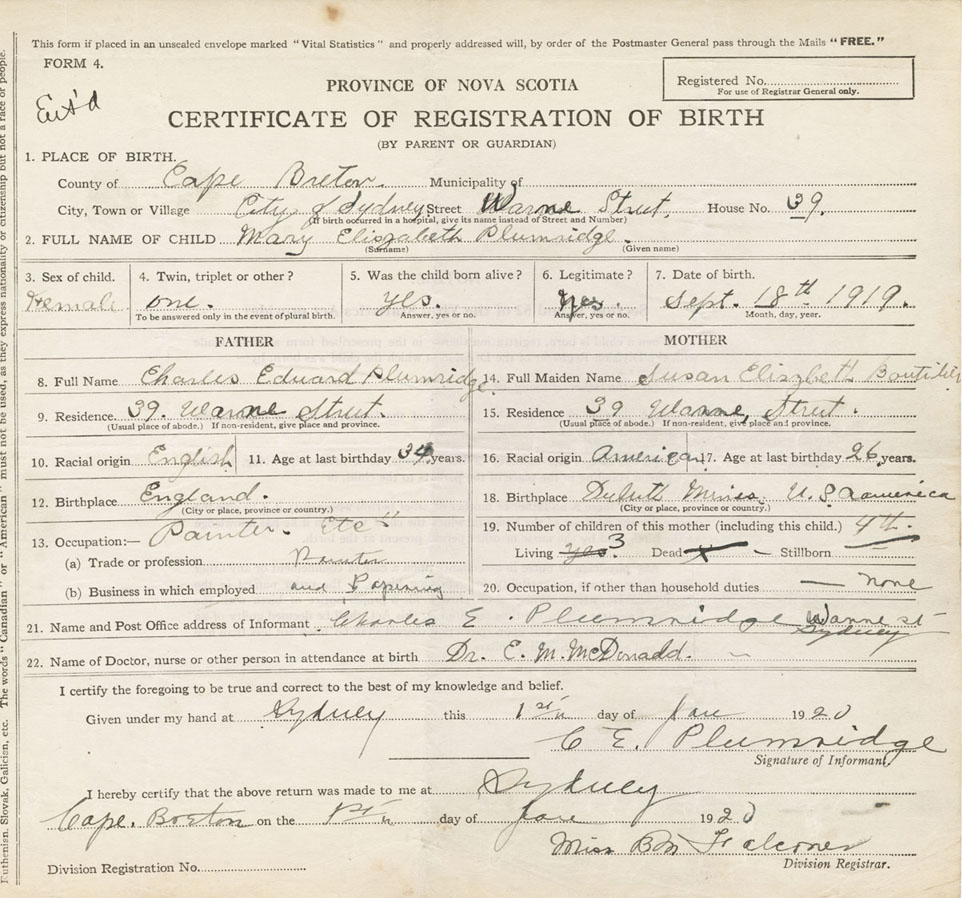 This form if placed in an unsealed envelope marked "Vital Statistics" and properly addressed will, by order of the Postmaster General pass through the Mails "FREE."
FORM 4.
Registered No.
For use of Registrar General only.
Ent'd
PROVINCE OF NOVA SCOTIA
CERTIFICATE OF REGISTRATION OF BIRTH
(BY PARENT OR GUARDIAN)
1. PLACE OF BIRTH.
County of Cape Breton. Municipality of
City, Town or Village City of Sydney Street Warne Street, House No. 39.
(If birth occurred in a hospital, give its name instead of Street and Number)
2. FULL NAME OF CHILD Mary Eliszabeth Plumridge.
(Surname) (Given name)
3. Sex of child. 4. Twin, triplet or other? 5. Was the child born alive? 6. Legitimate? 7. Date of birth.
Female one. yes. yes. Sept. 18th 1919.
To be answered only in the event of plural birth. Answer, yes or no. Answer, yes or no. Month, day, year.
FATHER MOTHER
8. Full Name Charles Edward Plumridge 14. Full Maiden Name Susan Elizabeth Boutilier
9. Residence 39. Warne Street. 15. Residence 39 Warne, Street.
(Usual place of abode.) If non-resident, give place and province. (Usual place of abode.) If non-resident, give place and province.
10. Racial origin English 11. Age at last birthday 34 years. 16. Racial origin American 17. Age at last birthday 26 years.
12. Birthplace England. 18. Birthplace U. S America
(City or place, province or country.) (City or place, province or country.)
13. Occupation:— Painter. Etc 19. Number of children of this mother (including this child.) 4th.
(a) Trade or profession Painter Living 3 Dead — Stillborn
(b) Business in which employed and Papering 20. Occupation, if other than household duties — none
21. Name and Post Office address of Informant Charles E. Plumridge Warne st
Sydney
22. Name of Doctor, nurse or other person in attendance at birth Dr. E. M. McDonadd. —
I certify the foregoing to be true and correct to the best of my knowledge and belief.
Given under my hand at Sydney this 1st day of Jane 1920
C E. Plumridge
Signature of Informant
I hereby certify that the above return was made to me at Sydney
Cape. Breton on the 1st day of Jane 1920
Miss B M Falconer
Division Registrar.
Division Registration No.
Ruthenian, Slovak, Galician, etc. The words "Canadian" or "American" must not be used, as they express nationality or citizenship but not a race or people.